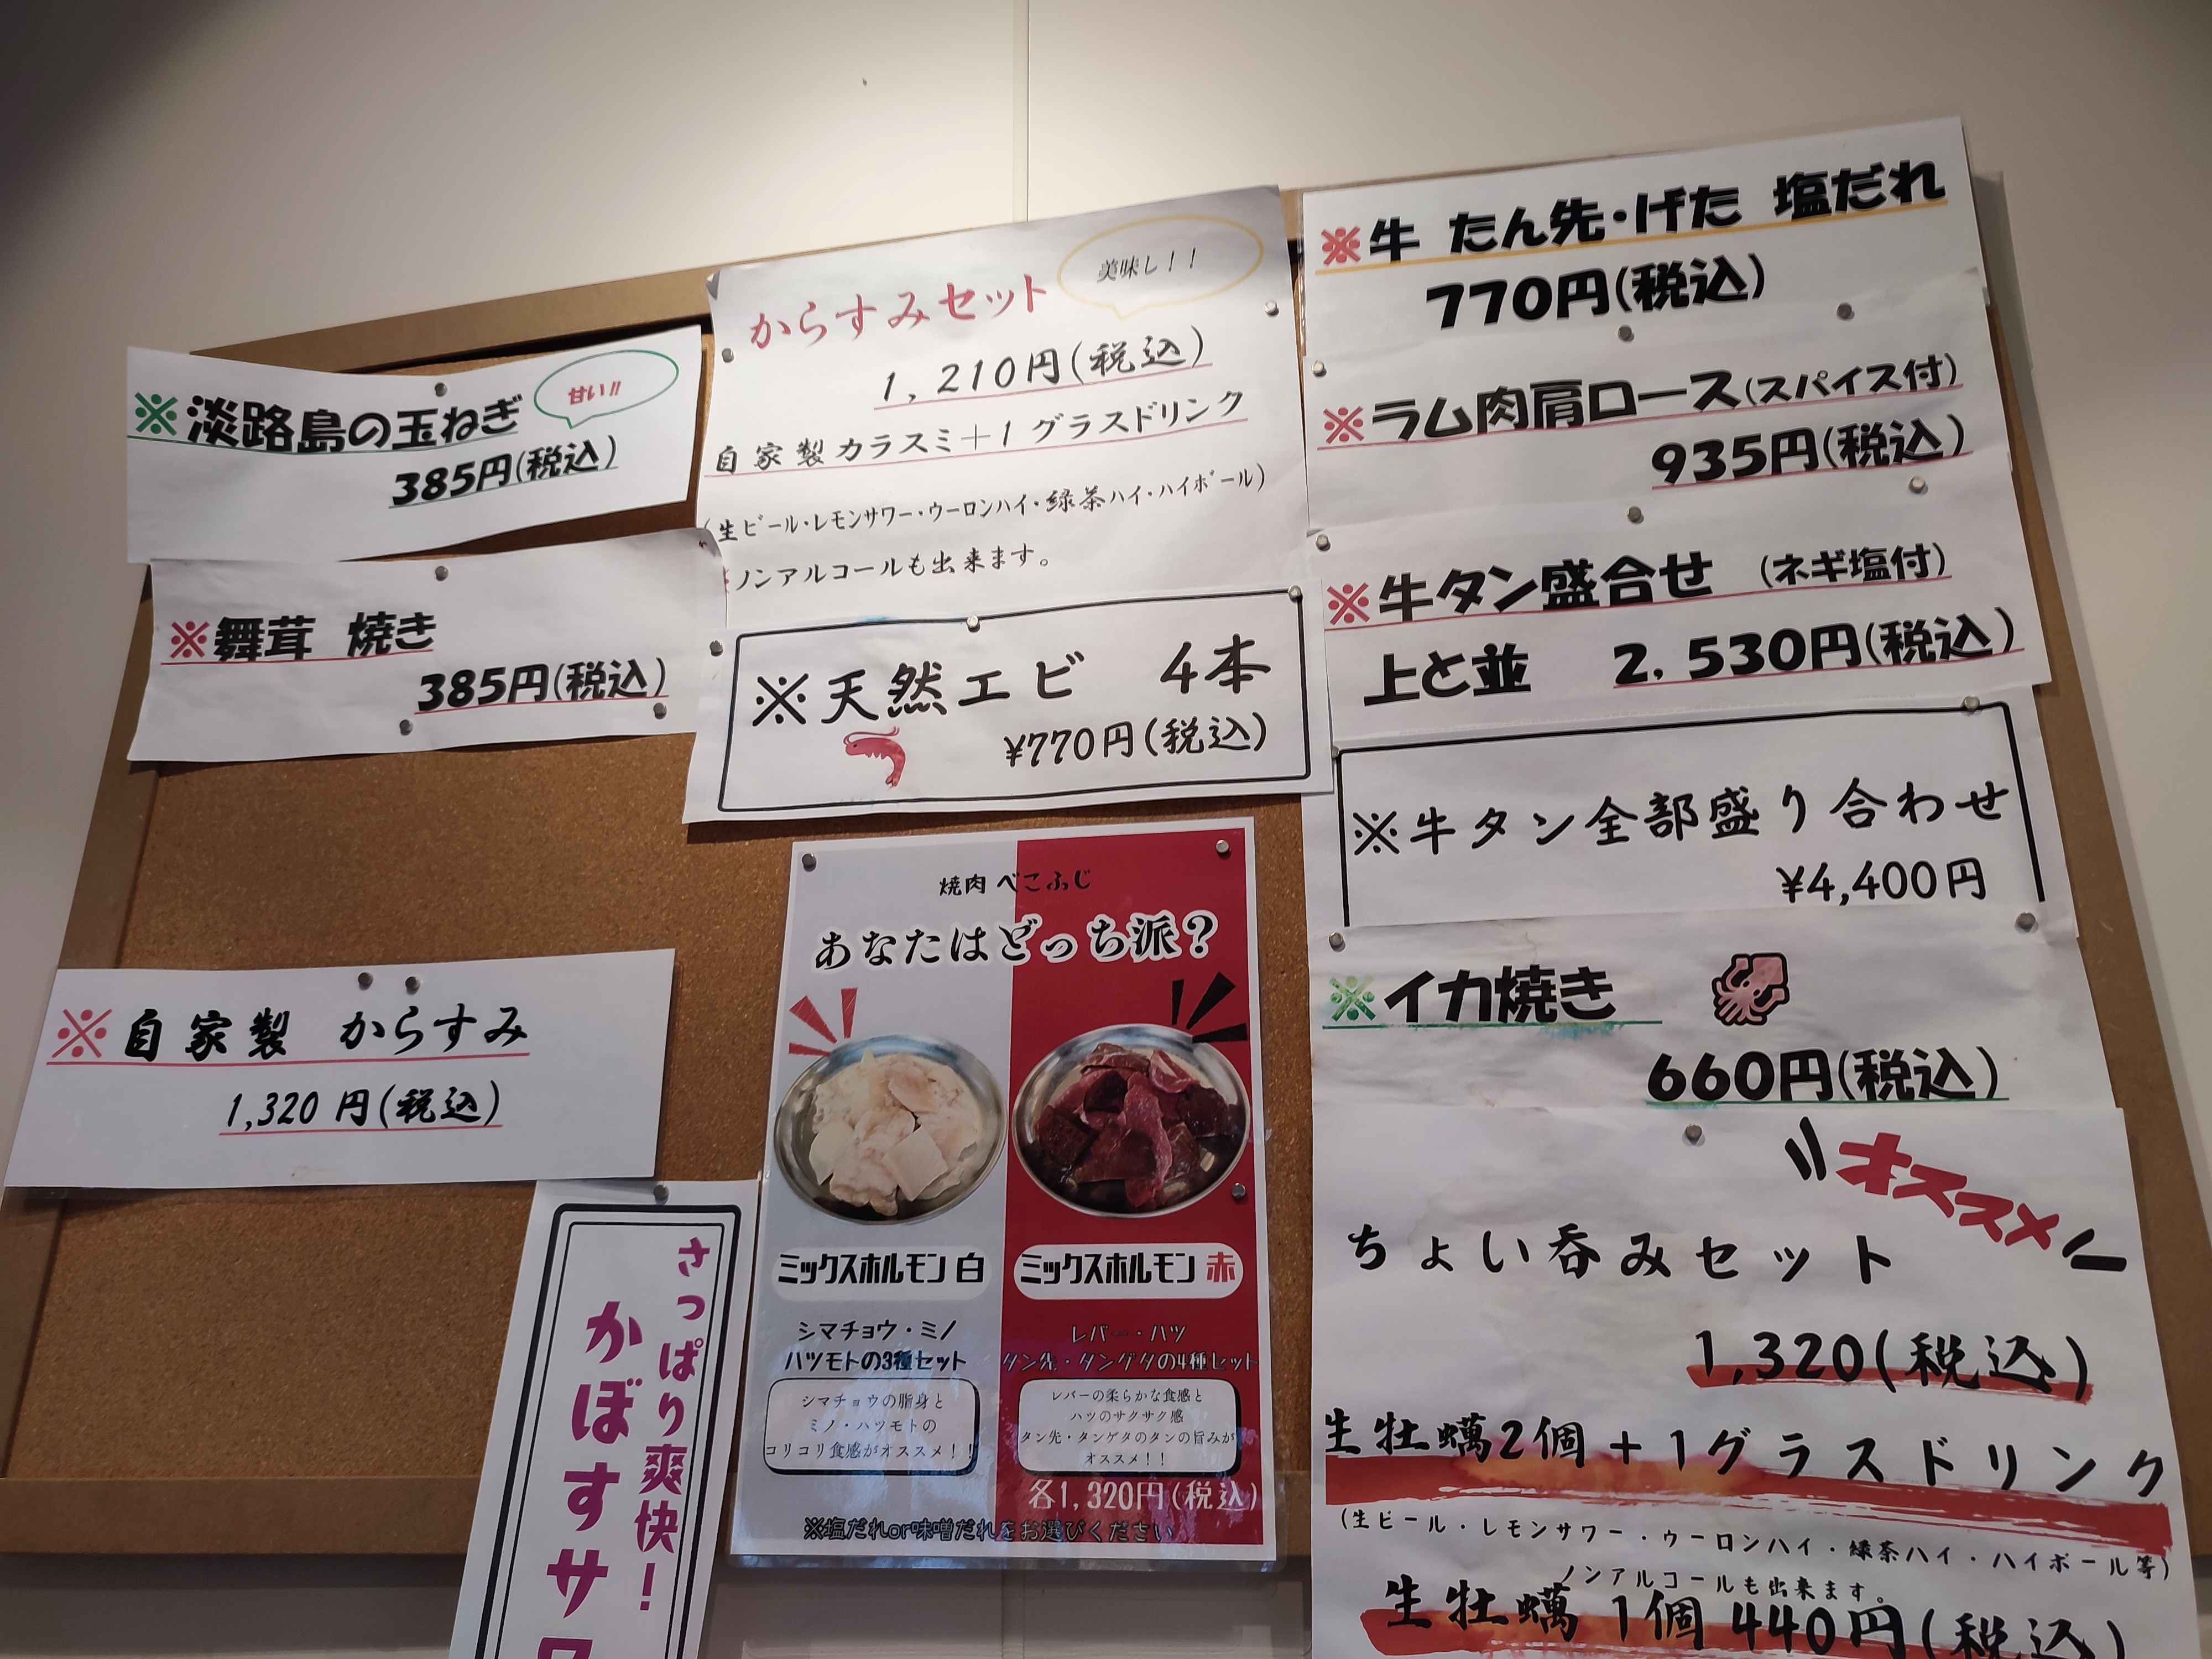 ※淡路島の玉ねぎ
甘い!!
385円(税込)
※舞茸 焼き
385円(税込)
※自家製 からすみ
1,320円(税込)
さっぱり爽快!
かぼすサワ
からすみセット
美味し!!
1,210円(税込)
自家製カラスミ+1グラスドリンク
(生ビール・レモンサワー・ウーロンハイ・緑茶ハイ・ハイボール)
※ノンアルコールも出来ます。
※天然エビ 4本
¥770円(税込)
焼肉 べこふじ
あなたはどっち派?
ミックスホルモン 白
シマチョウ・ミノ
ハツモトの3種セット
シマチョウの脂身と
ミノ・ハツモトの
コリコリ食感がオススメ!!
ミックスホルモン 赤
レバー・ハツ
タン先・タンゲタの4種セット
レバーの柔らかな食感と
ハツのサクサク感
タン先・タンゲタのタンの旨みが
オススメ!!
各1,320円(税込)
※塩だれor味噌だれをお選びください
※牛 たん先・げた 塩だれ
770円(税込)
※ラム肉肩ロース(スパイス付)
935円(税込)
※牛タン盛合せ (ネギ塩付)
上と並 2,530円(税込)
※牛タン全部盛り合わせ
¥4,400円
※イカ焼き
660円(税込)
オススメ
ちょい呑みセット
1,320(税込)
生牡蠣2個+1グラスドリンク
(生ビール・レモンサワー・ウーロンハイ・緑茶ハイ・ハイボール等)
ノンアルコールも出来ます。
生牡蠣 1個 440円(税込)